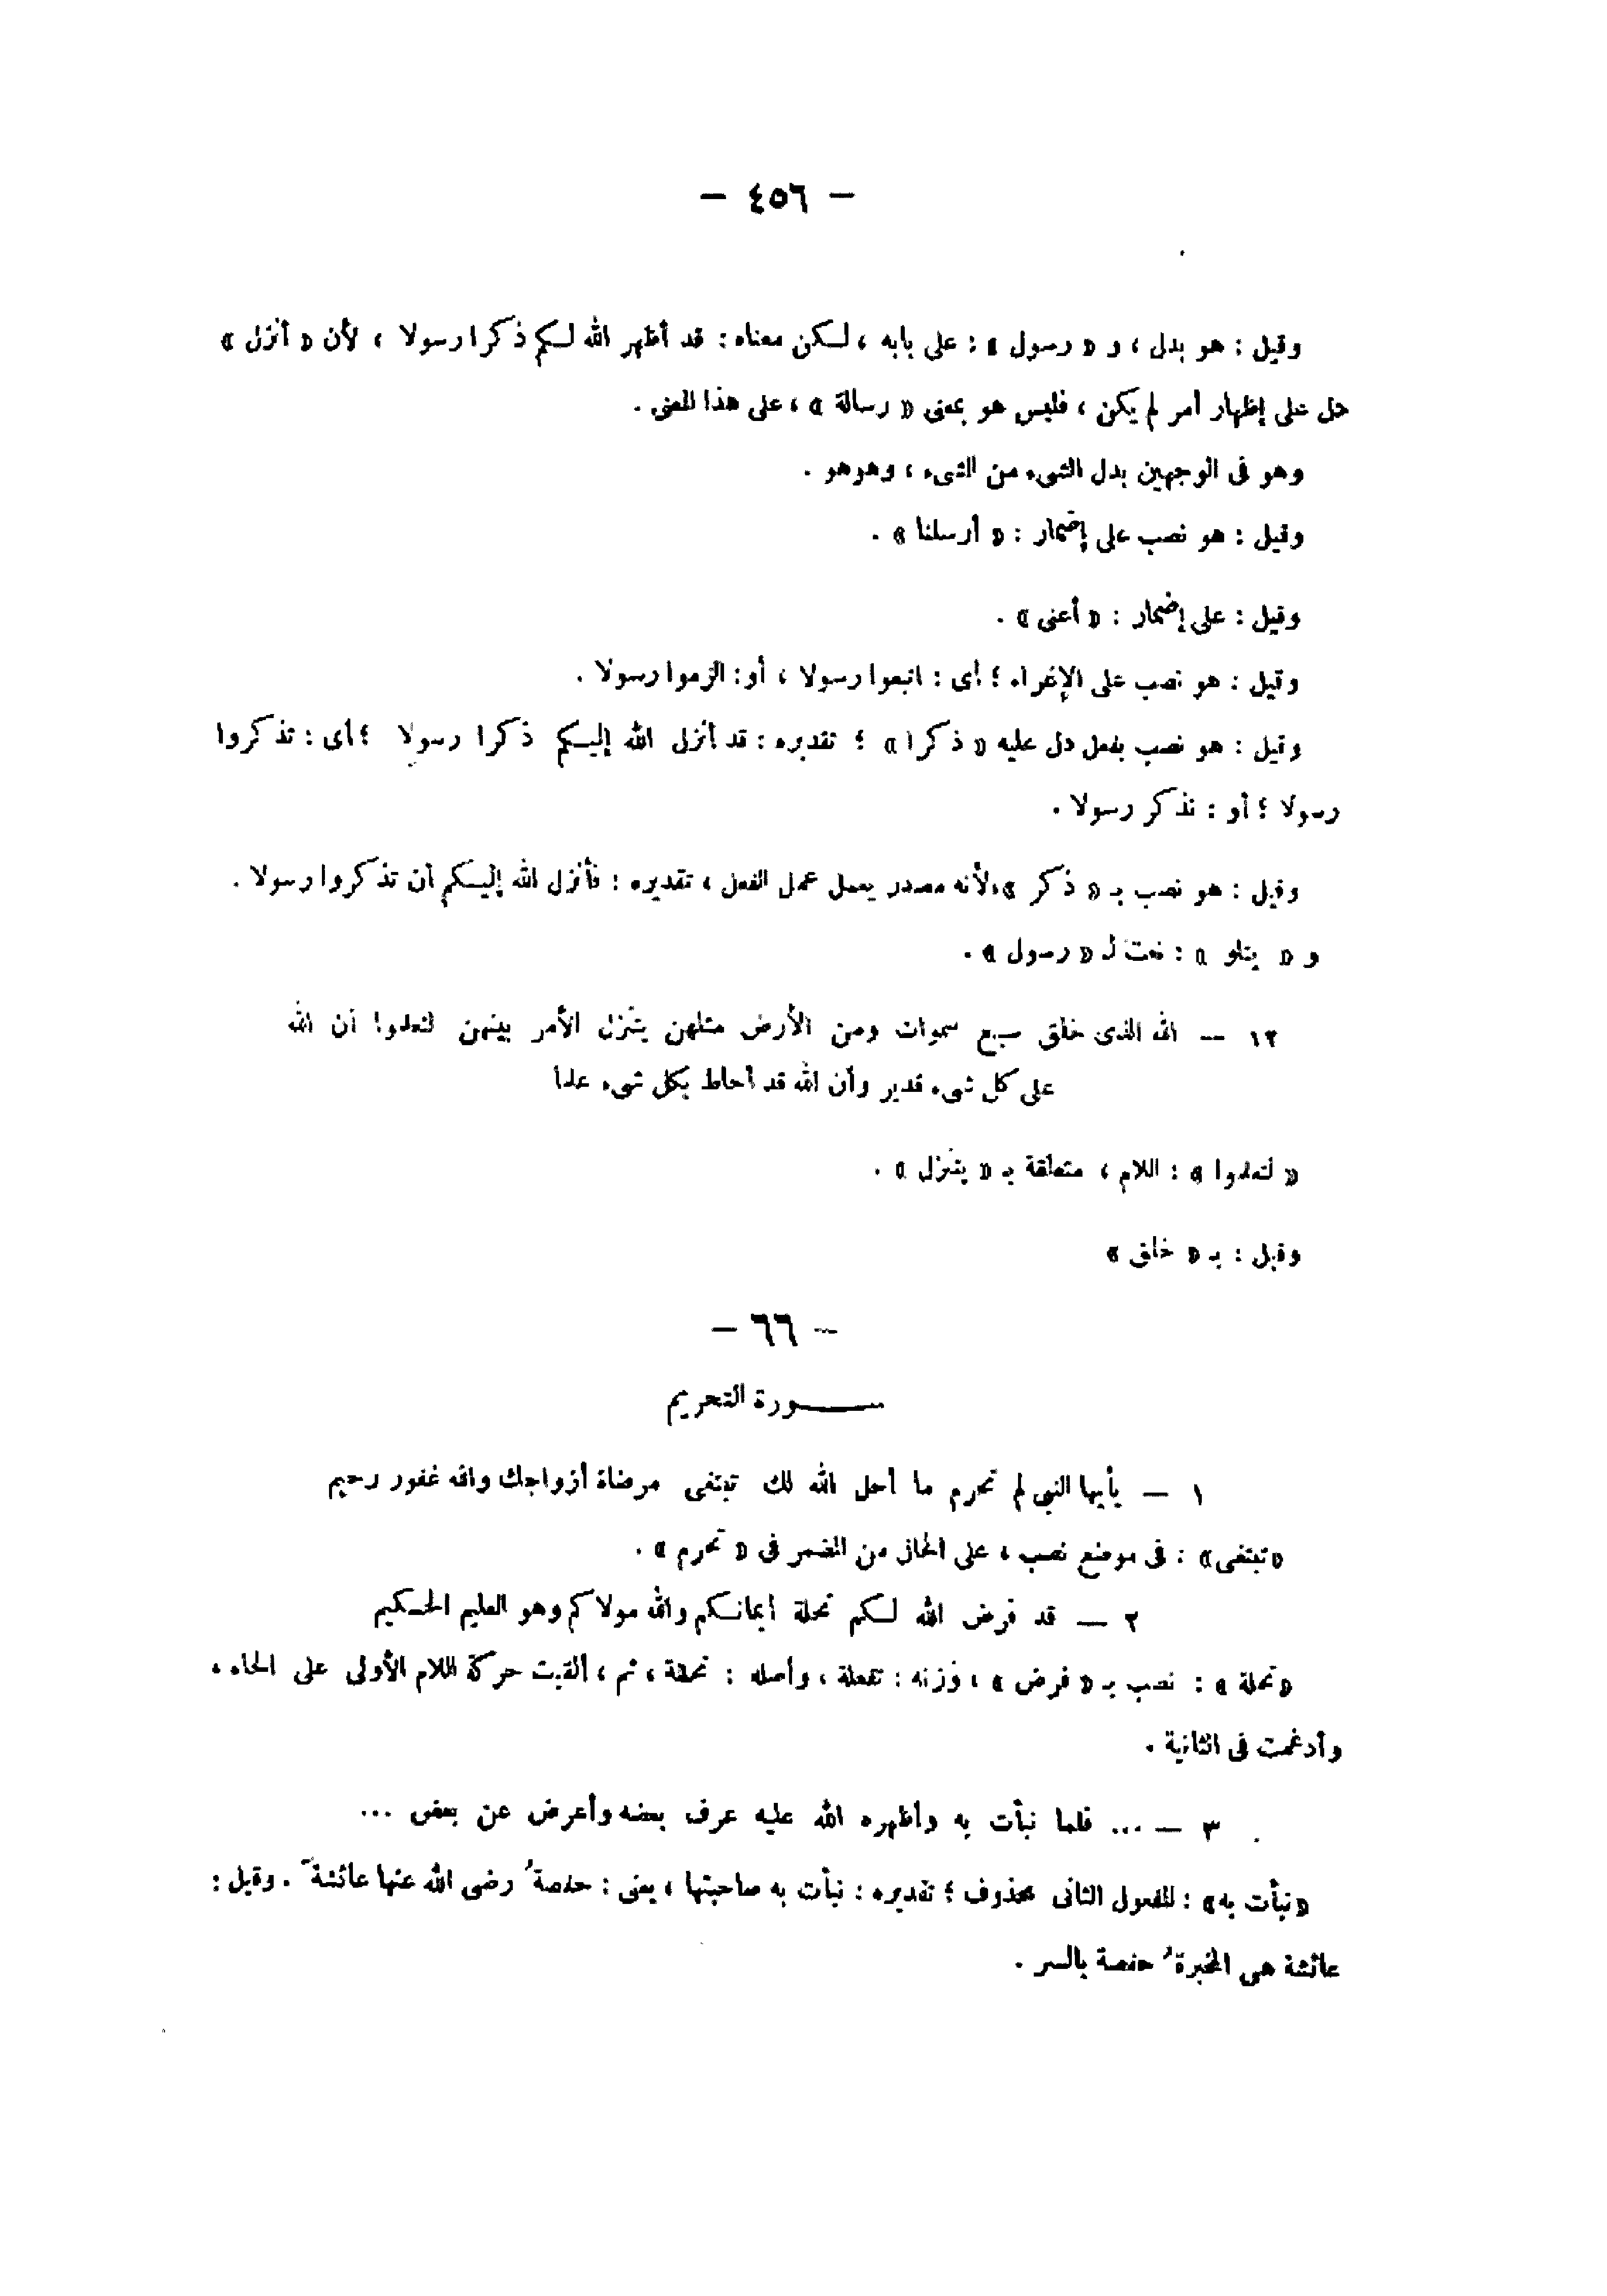 — ٤٥٦ —
وقيل : هو بدل ، و « رسول » : على بابه ، لـكن معناه : قد أظهر الله لـكم ذكرا رسولا ، لأن « أنزل »
دل على إظهار أمر لم يكن ، فليس هو بمعنى « رسالة » ، على هذا المعنى .
وهو فى الوجهين بدل الشىء من الشىء ، وهو هو .
وقيل : هو نصب على إضمار : « أرسلنا » .
وقيل : على إضمار : « أعنى » .
وقيل : هو نصب على الإغراء ؛ أى : اتبعوا رسولا ، أو : الزموا رسولا .
وقيل : هو نصب بفعل دل عليه « ذكرا » ؛ تقديره : قد أنزل الله إليـكم ذكرا رسولا ؛ أى : تذكروا
رسولا ؛ أو : تذكر رسولا .
وقيل : هو نصب بـ « ذكر » ، لأنه مصدر يعمل عمل الفعل ، تقديره : فأنزل الله إليـكم أن تذكروا رسولا .
و « يتلو » : نعت لـ « رسول » .
١٢ — الله الذى خلق سبع سموات ومن الأرض مثلهن يتنزل الأمر بينهن لتعلموا أن الله
على كل شىء قدير وأن الله قد أحاط بكل شىء علما
« لتعلموا » : اللام ، متعلقة بـ « يتنزل » .
وقيل : بـ « خلق »
— ٦٦ —
ســـورة التحريم
١ — يأيها النبى لم تحرم ما أحل الله لك تبتغى مرضاة أزواجك والله غفور رحيم
« تبتغى » : فى موضع نصب ، على الحال من المضمر فى « تحرم » .
٢ — قد فرض الله لـكم تحلة أيمانـكم والله مولاكم وهو العليم الحـكيم
« تحلة » : نصب بـ « فرض » ، وزنه : تفعلة ، وأصله : تحللة ، ثم ، ألقيت حركة اللام الأولى على الحاء ،
وأدغمت فى الثانية .
٣ — ... فلما نبأت به وأظهره الله عليه عرف بعضه وأعرض عن بعض ...
« نبأت به » : المفعول الثانى محذوف ؛ تقديره : نبأت به صاحبتها ، يعنى : حفصةُ رضى الله عنها عائشةَ . وقيل :
عائشة هى المخبرةُ حفصة بالسر .